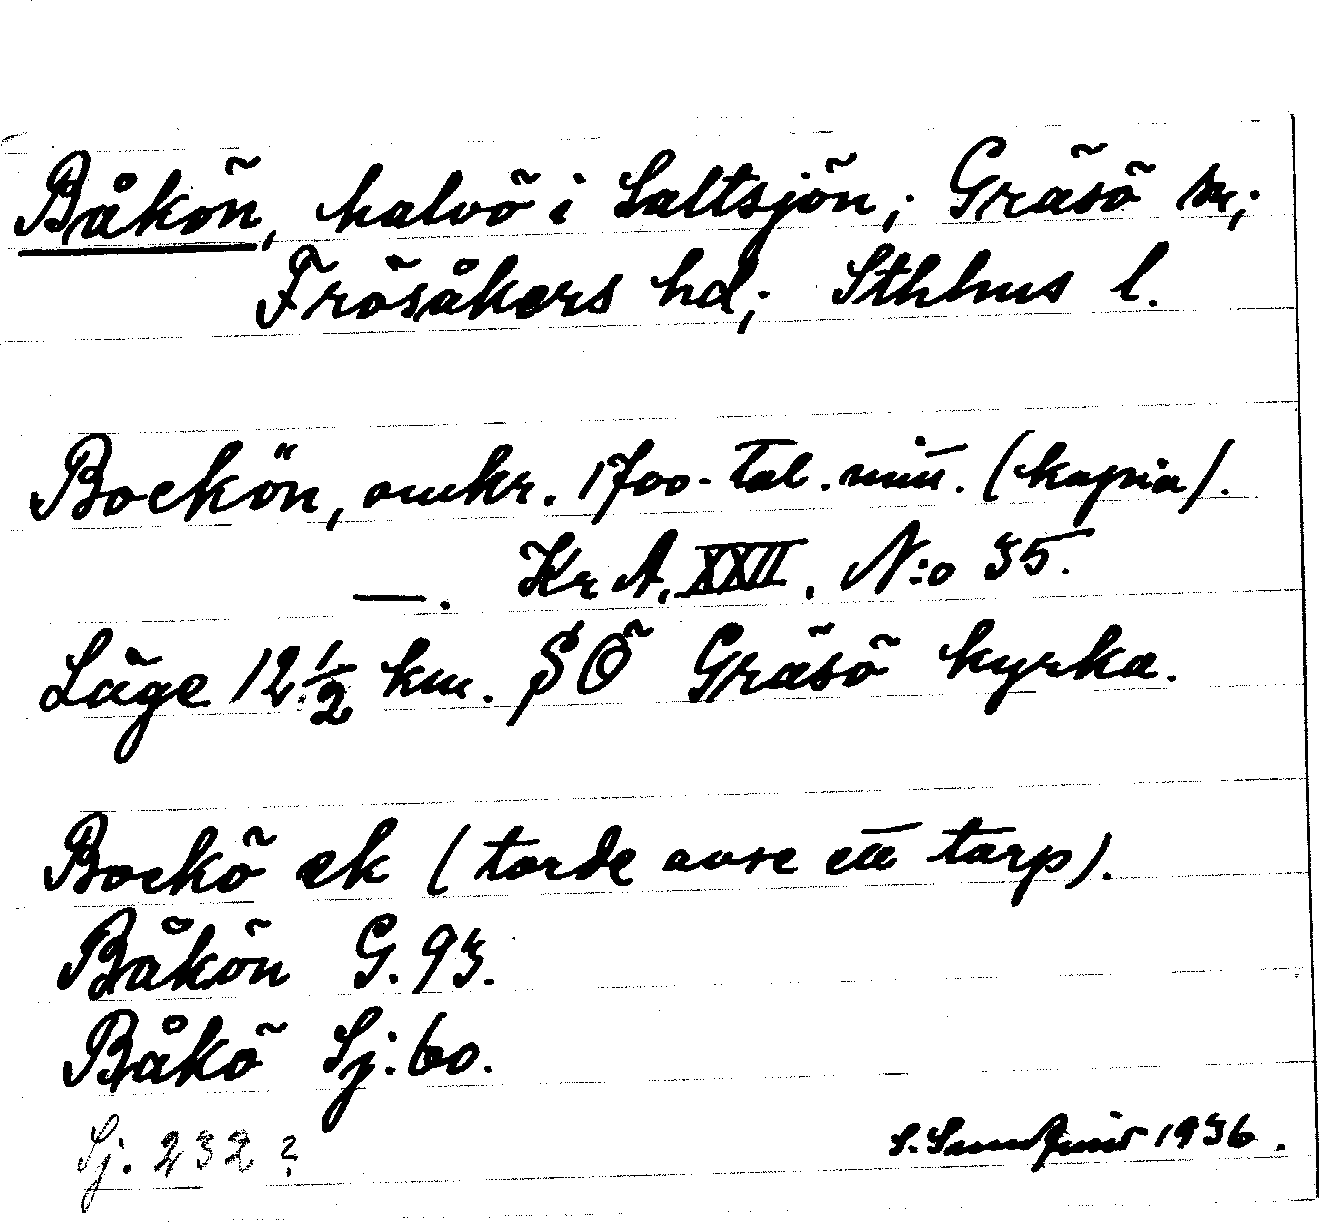 Båkön, halvö i Saltsjön; Gräsö sn;
Frösåkers hd; Sthlms l.
Bockön, omkr. 1700-tal. mitt. (kopia).
—. KrA. XXII. N:o 35.
Läge 12 1/2 km. SÖ Gräsö kyrka.
Bockö ek (torde avse ett torp).
Båkön G. 93.
Båkö Sj: 60.
Sj. 232?
S. Sundqvist 1936.